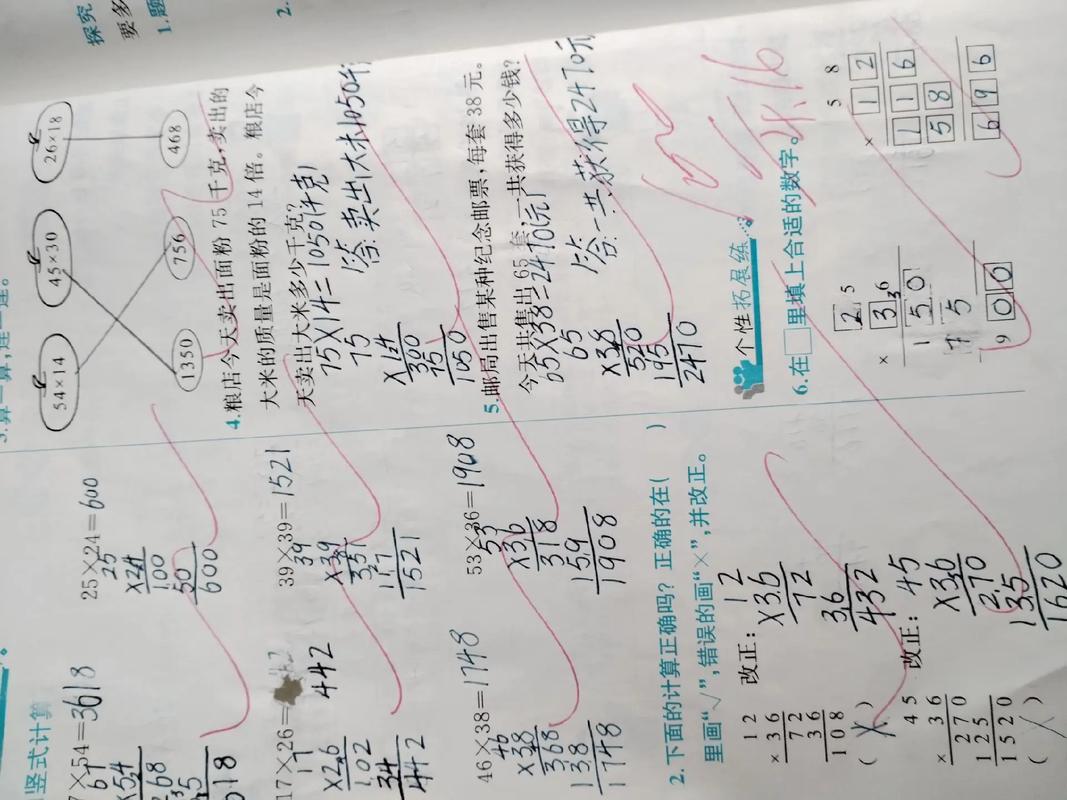 探究
要多
1.题
2.
竖式计算
7×54=3618
67
×54
268
618
25×24=600
25
×24
100
50
600
17×26=
442
17
×26
102
34
442
39×39=1521
39
×39
351
117
1521
46×38=1748
46
×38
368
138
1748
53×36=1908
53
×36
318
159
1908
2.下面的计算正确吗?正确的在(  )
里画“√”,错误的画“×”,并改正。
1 2
× 3 6
7 2
3 6
1 0 8
( × )
改正:
12
×36
72
36
432
4 5
× 3 6
2 7 0
1 2 5
1 5 2 0
( × )
改正:
45
×36
270
135
1620
3.算一算,连一连。
54×14
45×30
26×18
1350
756
468
4.粮店今天卖出面粉 75 千克,卖出的
大米的质量是面粉的 14 倍。粮店今
天卖出大米多少千克?
75×14=1050(千克)
75
×14
300
75
1050
答:卖出大米1050千
5.邮局出售某种纪念邮票,每套 38 元。
今天共售出 65 套,一共获得多少钱?
65×38=2470(元)
65
×38
520
195
2470
答:一共获得2470元
个性拓展练
6.在□里填上合适的数字。
2 5
× 3 6
1 5 0
7 5
9 0 0
5 8
× 1 2
1 1 6
5 8
6 9 6